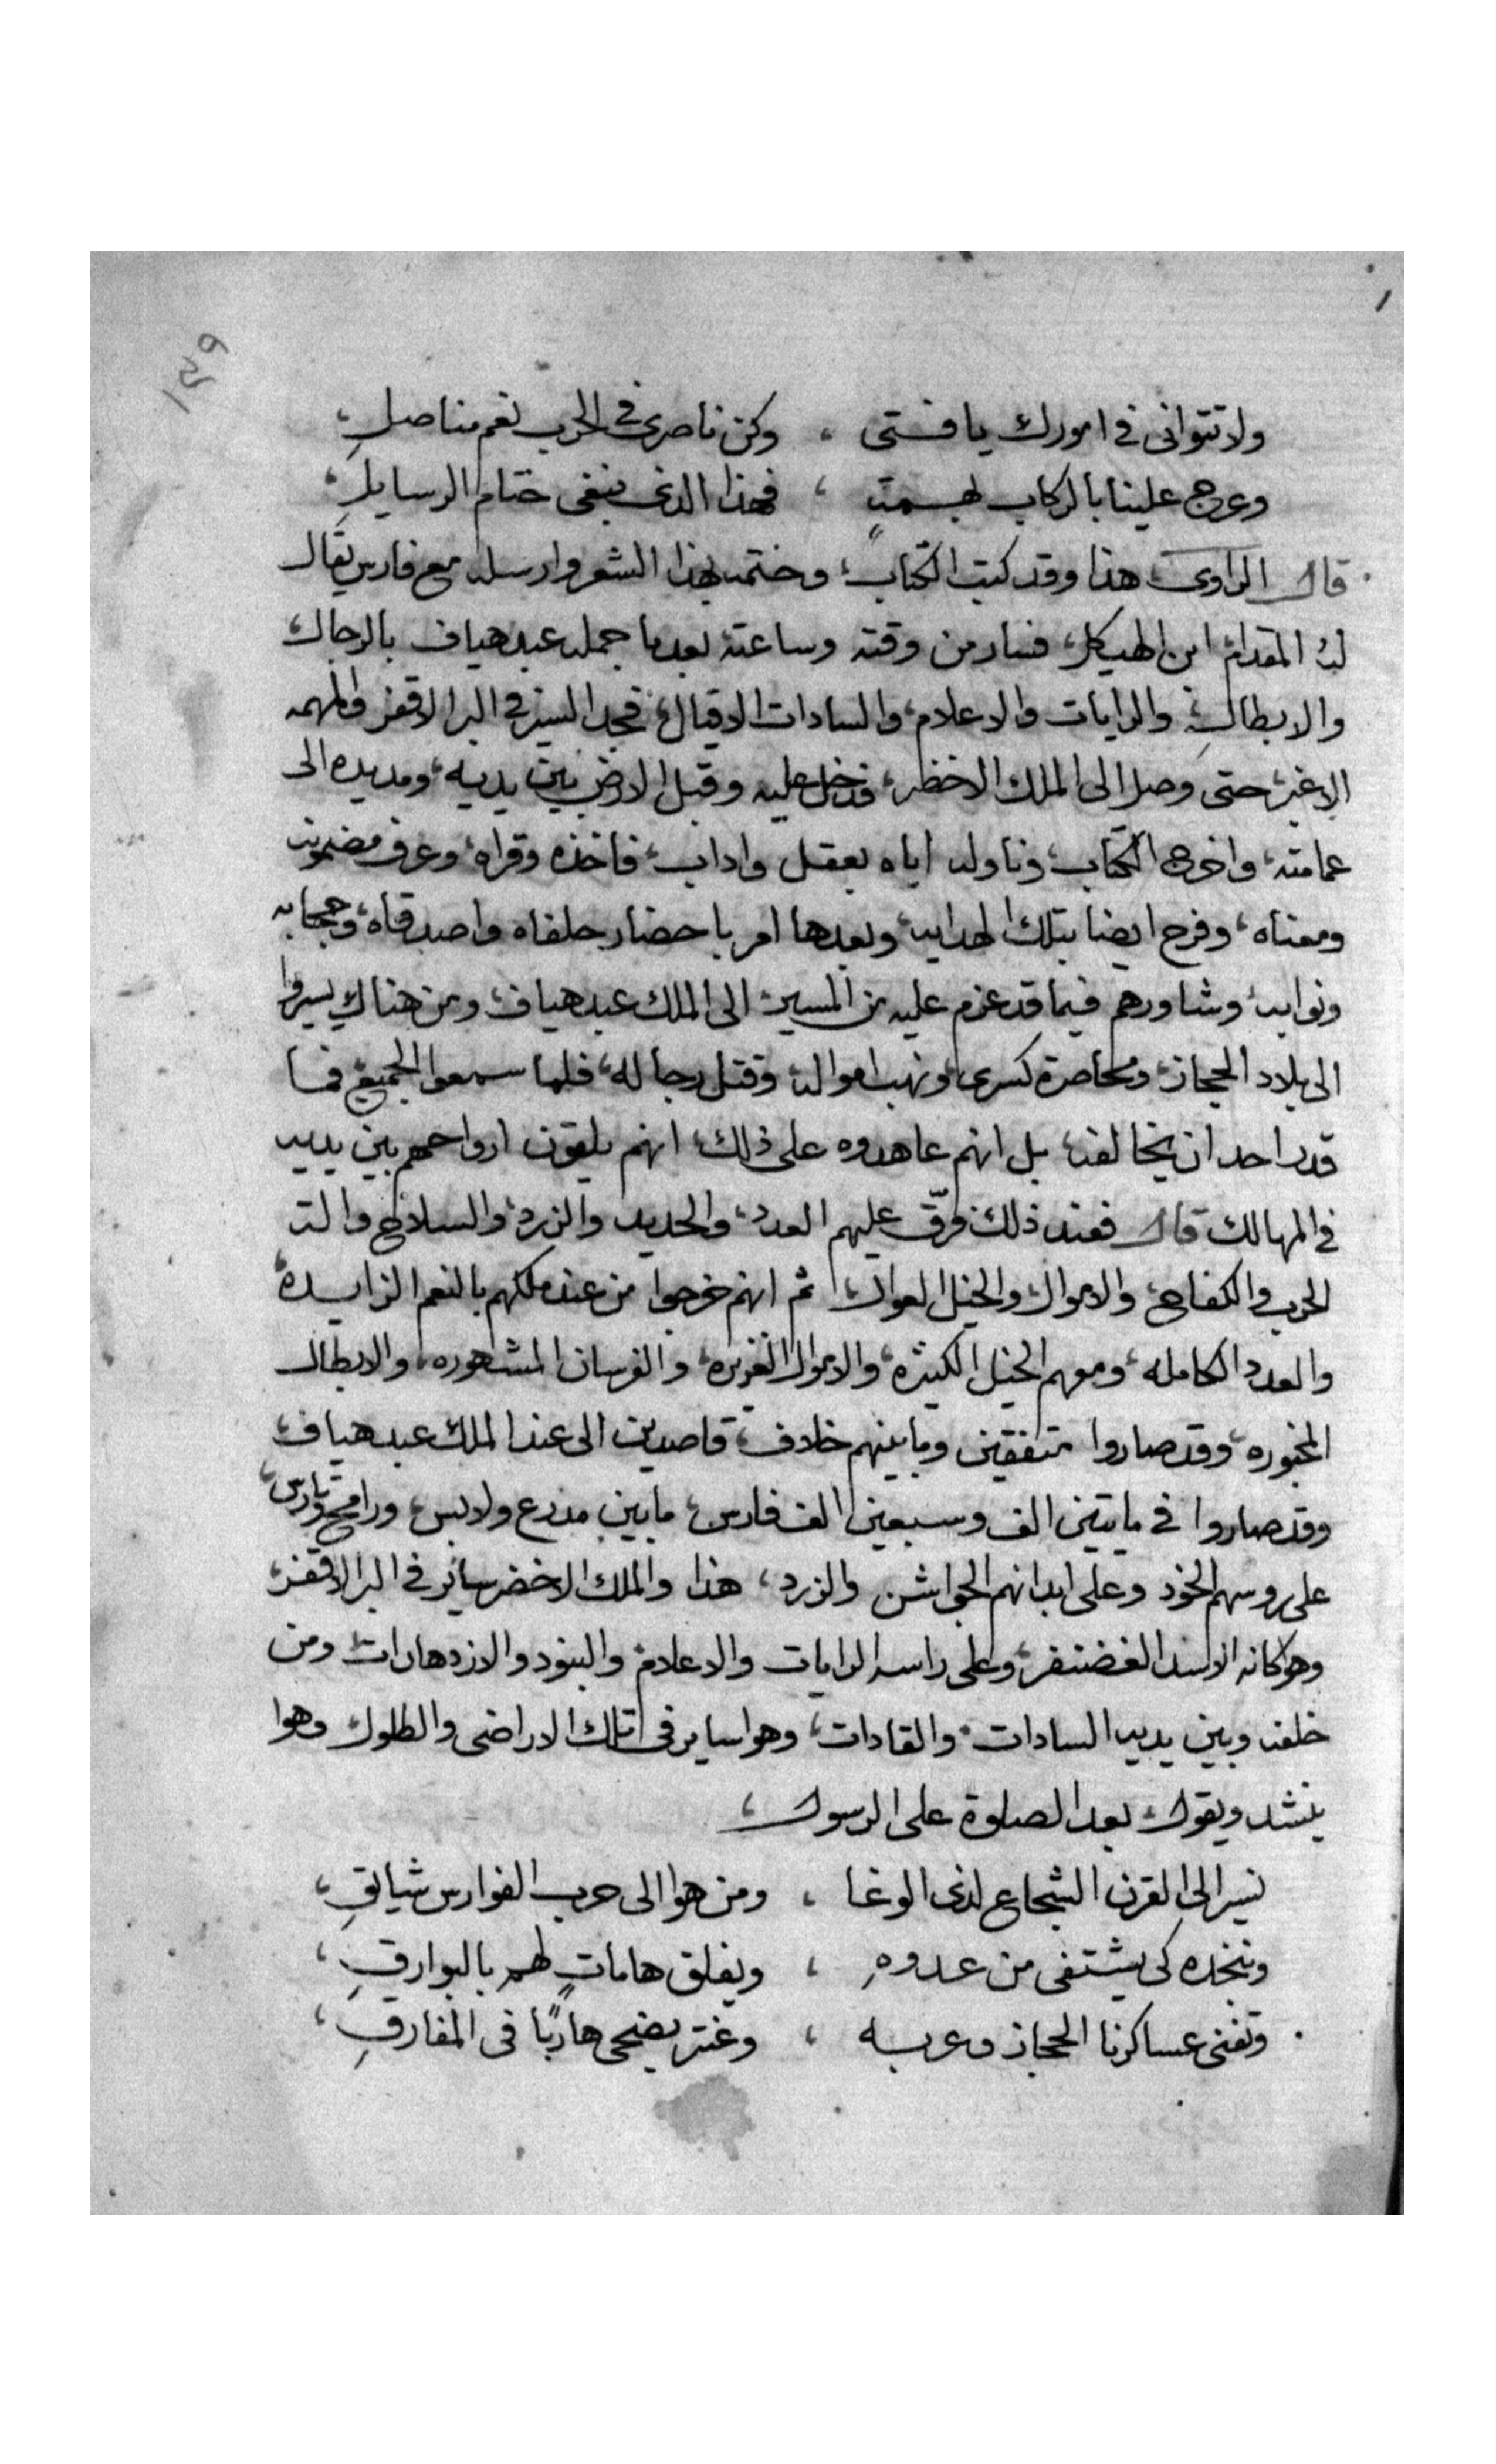 ١٤٩
ولا تتوانى في امورك يا فتى ، وكن ناصري في الحرب نعم مناصل،
وعرج علينا بالركاب بهمة ، فهذا الذي نبغي ختام الرسايل،
قال الراوي هذا وقد كتب الكتاب، وختمه بهذا الشعر وارسله مع فارس يقال
له المقدام ابن الهيكل، فسار من وقته وساعته بعدما حمله عبد هياف بالرجال،
والابطال، والرايات والاعلام، والسادات الاقيال، فجد السير في البر الاقفر والمهمه
الاغبر، حتى وصل الى الملك الاخظر، فدخل عليه وقبل الارض بين يديه، ومد يده الى
عمامته، واخرج الكتاب، وناوله اياه بعقل واداب، فاخذه وقراه، وعرف مضمونه
ومعناه، وفرح ايضا بتلك الهدايه، وبعدها امر باحضار حلفاه واصدقاه، وحجابه
ونوابه، وشاورهم فيما قد عزم عليه من المسير، الى الملك عبد هياف، ومن هناك يسيروا
الى بلاد الحجاز، ومحاصرة كسرى، ونهب امواله، وقتل رجاله، فلما سمعوا الجميع فما
قدر احد ان يخالفه، بل انهم عاهدوه على ذلك، انهم يلقون ارواحهم بين يديه
في المهالك قال فعند ذلك فرّق عليهم العدد، والحديد والزرد، والسلاح والة
الحرب والكفاح، والاموال والخيل العوال، ثم انهم خرجوا من عند ملكهم بالنعم الزايده،
والعدد الكامله، ومعهم الخيل الكثيره، والاموال الغزيره، والفرسان المشهوره، والابطال
المخبوره، وقد صاروا متفقين وما بينهم خلاف، قاصدين الى عند الملك عبد هياف،
وقد صاروا في مايتين الف وسبعين الف فارس، ما بين مدرع ولابس، ورامح وتارس،
على روسهم الخوذ وعلى ابدانهم الجواشن والزرد، هذا والملك الاخضر ساير في البر الاقفر،
وهو كانه الاسد الغضنفر، وعلى راسه الرايات والاعلام، والبنود والازدهارات ومن
خلفه وبين يديه السادات، والقادات، وهوا ساير في تلك الاراضي والطلول، وهوا
ينشد ويقول، بعد الصلوة على الرسول،
نسير الى القرن الشجاع لدى الوغا ، ومن هوا الى حرب الفوارس شايق،
وننجده كي يشتفى من عدوه ، ويفلق هامات لهم بالبوارق،
وتفنى عساكرنا الحجاز وعربه ، وعنتر يضحى هاربًا في المفارق،